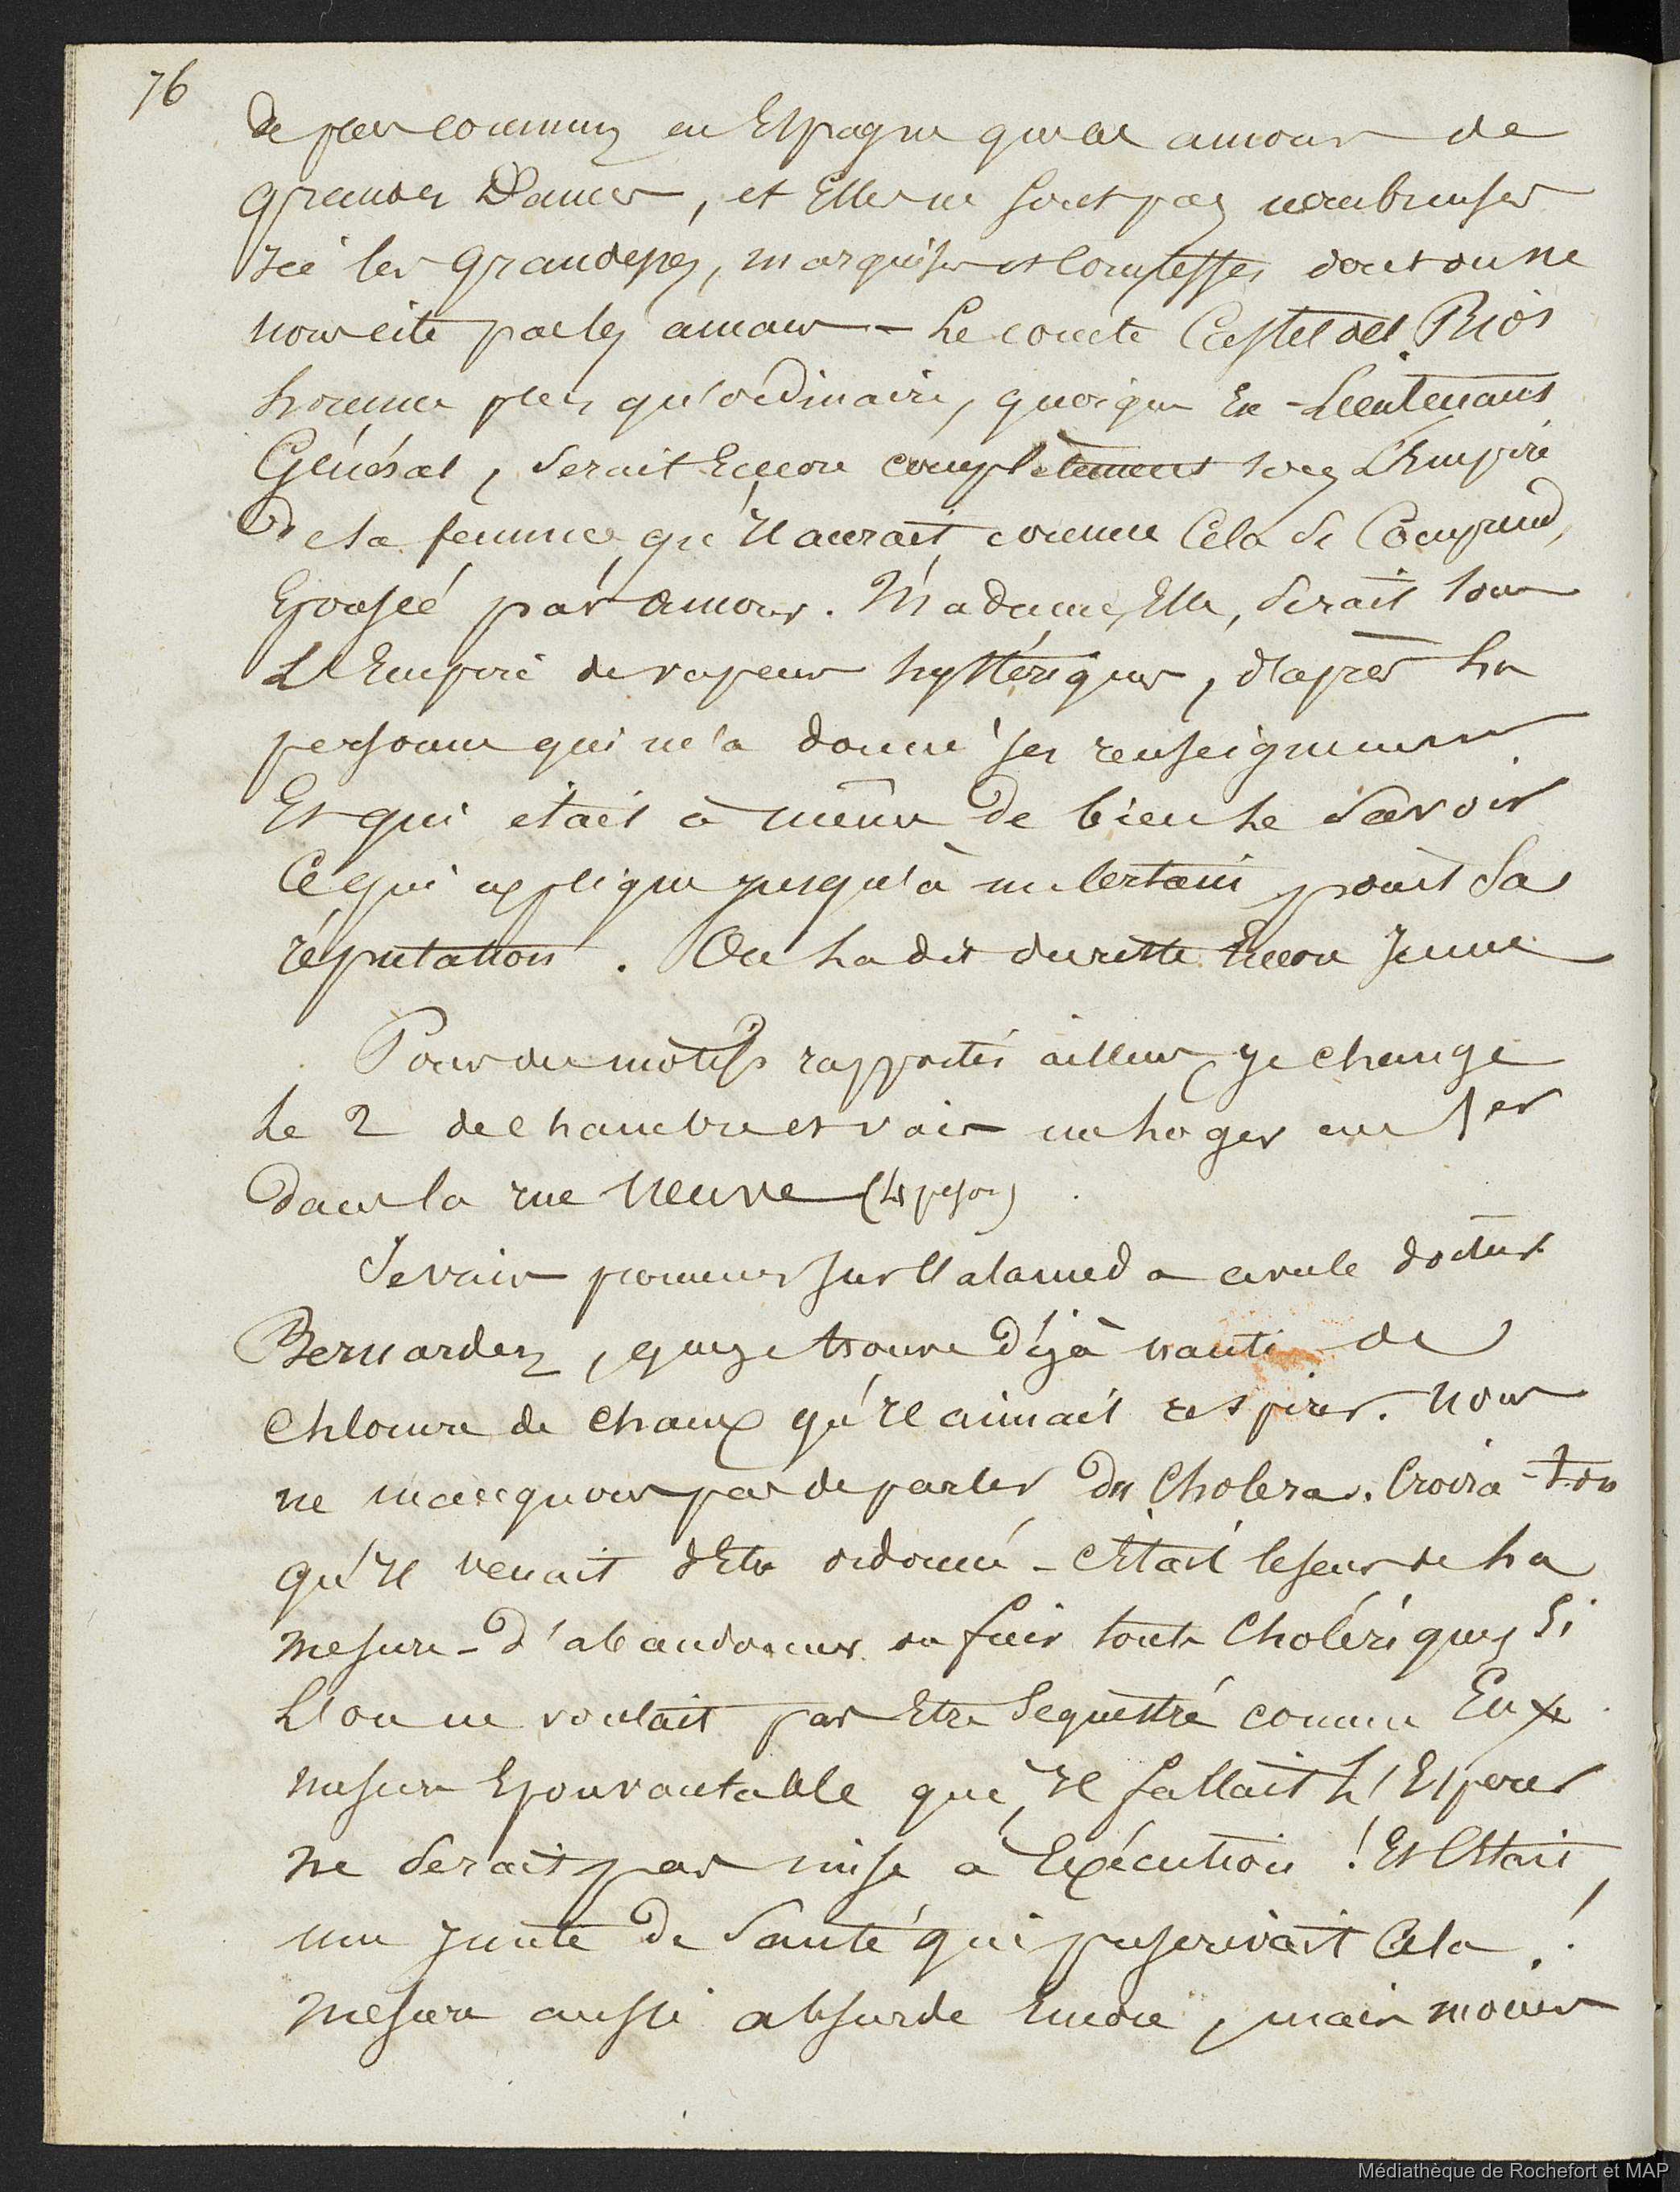 76
de plus commun en Espagne que les amours de
grandes Dames, et Elles ne sont pas nombreuses
ici les Grandesses, marquises et Comtesses dont on ne
nous cite pas les amans - Le comte Castel del Rios
homme plus qu'ordinaire, quoique Ex-Lieutenant
Général, serait Encore complètement sous L'Empire
De sa femme qu'Il aurait, comme Cela se Comprend,
Epousée par amour. Madame, Elle, serait sous
L'Empire de vapeurs hystériques, d'après La
personne qui m'a donné ses renseignemens
Et qui était à même de bien Le Savoir
Ce qui explique jusqu'à un Certain point Sa
réputation. On La dit du reste Encore Jeune
Pour des motifs rapportés ailleurs je change
Le 2 de chambre et vais me Loger au 1er
Dans la rue Neuve
Je vais promener sur l'alameda avec le docteur
Bernardez, que je trouve Déjà nanti de
Chlorure de Chaux qu'Il aimait respirer. Nous
ne manquons pas de parler Du Cholera. Croira-t-on
qu'Il venait d'Etre ordonné - c'Etait le sens de La
mesure - D'abandonner ou fuir tout Cholériques Si
L'on ne voulait pas Etre Sequestré comme Eux
mesure Epouvantable que, Il fallait L'Espérer
ne serait pas mise à Exécution ! Et C'Etait
une Junte De Santé qui prescrivait Cela !
Mesure aussi absurde Encore, mais moins
Médiathèque de Rochefort et MAP